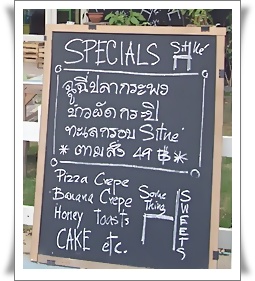 SPECIALS Sithe'
ฉู่ฉี่ปลากระพง
ข้าวผัดกะปิ
ทะเลกรอบ Sithe'
* ตามสั่ง 49 ฿ *
Pizza Crepe
Banana Crepe
Honey Toasts
CAKE etc.
Some Thing
SWEETS